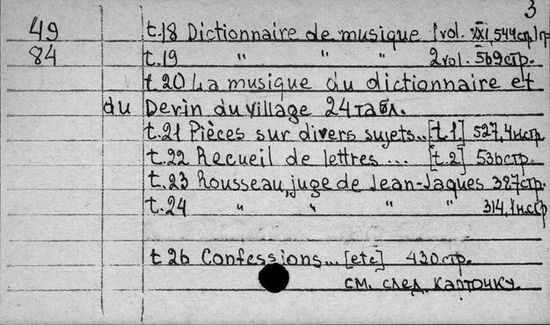 3
49 t.18 Dictionnaire de musique 1vol. XXI, 544стр.
84 t.19 " " " 2vol. 569стр.
t.20 La musique du dictionnaire et
du Devin du village 24табл.
t.21 Pièces sur divers sujets.. [t.1] 527, 4нстр
t.22 Recueil de lettres ... [t.2] 536стр.
t.23 Rousseau, juge de Jean-Jaques 387стр.
t.24 " " " " 314, 1нстр
t 26 Confessions... [etc] 430стр.
см. след. карточку.